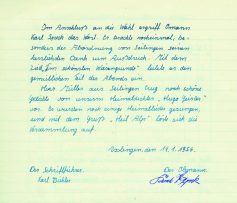 Im Anschluss an die Wahl ergriff Obmann
Karl Speck das Wort. Er brachte nocheinmal, be-
sonders der Abordnung von Seitingen seinen
herzlichsten Dank zum Ausdruck. Mit dem
Lied „Im schönsten Wiesengrunde" leitete er den
gemütlichen Teil des Abends ein.
Herr Müller aus Seitingen trug noch schöne
Gedichte von unserem Heimatdichter „Hugo Geisler"
vor. Es wurden noch einige Heimatlieder gesungen,
und mit dem Gruß „Heil Alb" löste sich die
Versammlung auf.
den 11. 1. 1954.
Der Schriftführer:
Der Obmann:
Karl
Karl Speck